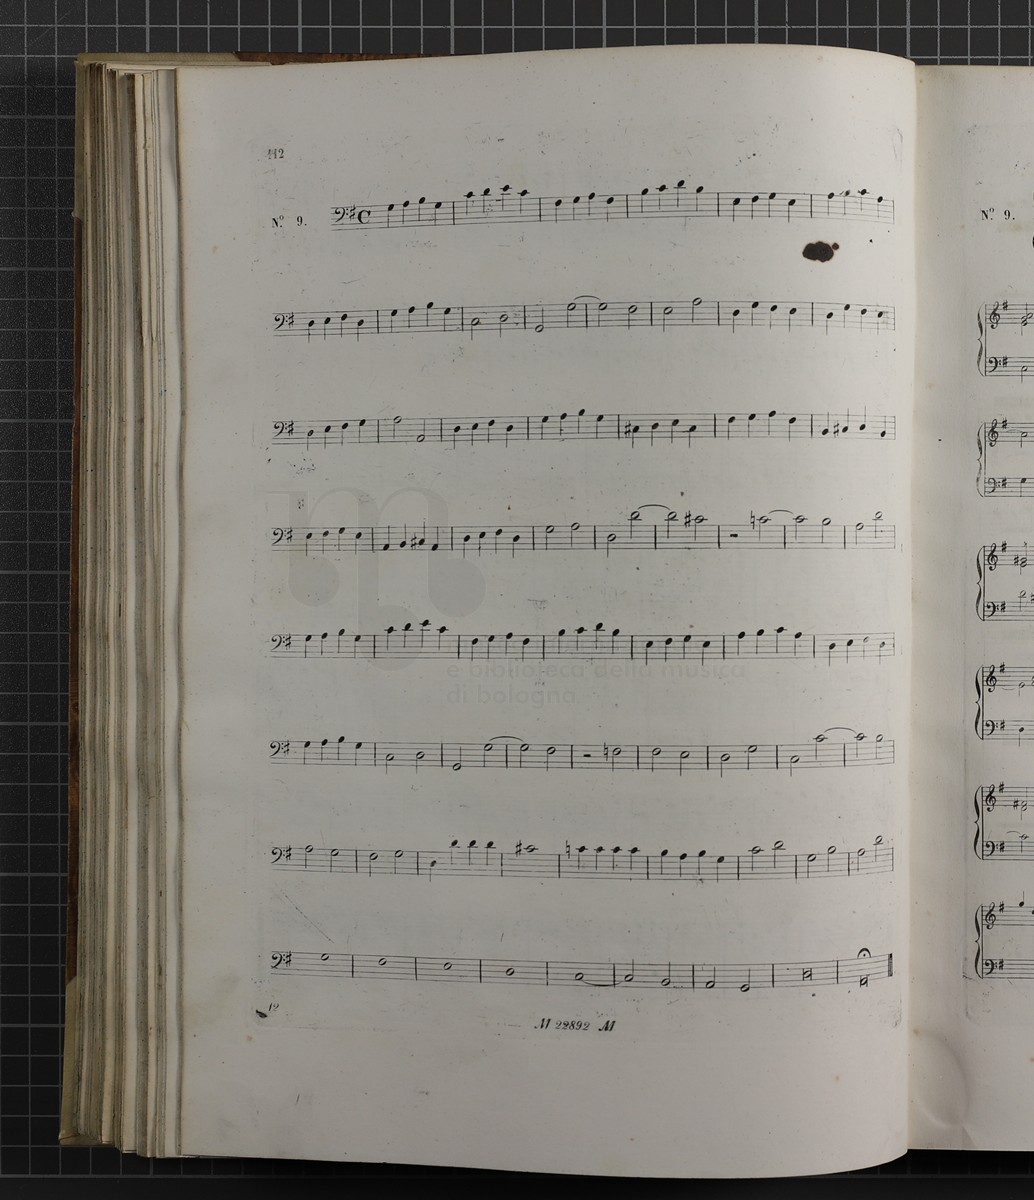 112
Nº 9.
Nº 9.
e biblioteca della musica
di bologna
12
M 22892 M